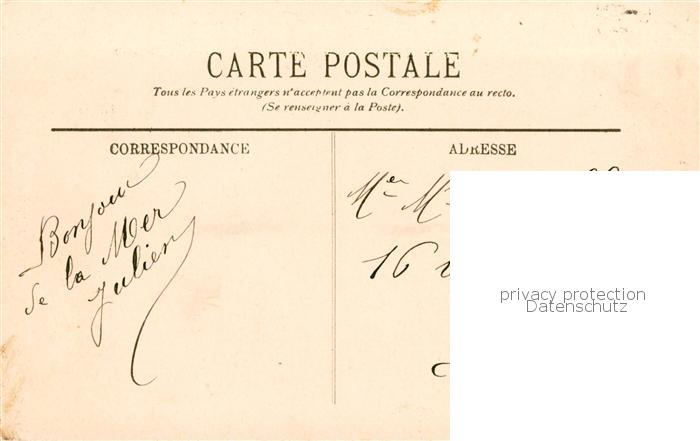 CARTE POSTALE
Tous les Pays étrangers n'acceptent pas la Correspondance au recto.
(Se renseigner à la Poste).
CORRESPONDANCE
ADRESSE
Bonjour
de la Mer
Julien
16
privacy protection
Datenschutz